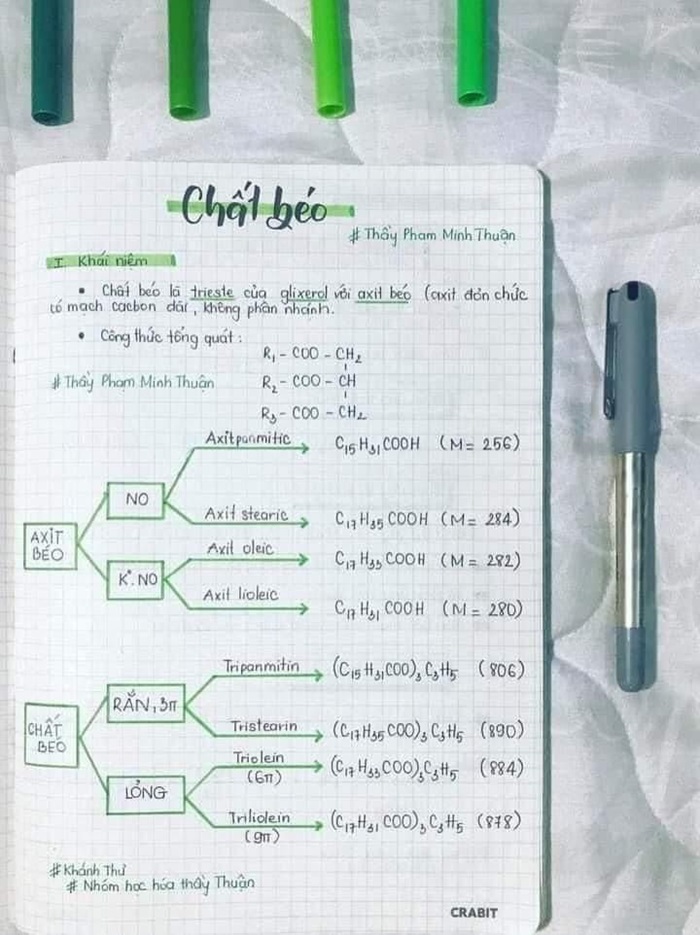 Chất béo
# Thầy Phạm Minh Thuận
I. Khái niệm
• Chất béo là trieste của glixerol với axit béo (axit đơn chức
có mạch cacbon dài, không phân nhánh.
• Công thức tổng quát:
R₁ - COO - CH₂
# Thầy Phạm Minh Thuận R₂ - COO - CH
R₃ - COO - CH₂
Axit panmitic C₁₅H₃₁COOH (M = 256)
NO
Axit stearic C₁₇H₃₅COOH (M = 284)
AXIT
BÉO
Axit oleic C₁₇H₃₃COOH (M = 282)
K°. NO
Axit lioleic C₁₇H₃₁COOH (M = 280)
Tripanmitin (C₁₅H₃₁COO)₃C₃H₅ (806)
RẮN, 3π
Tristearin (C₁₇H₃₅COO)₃C₃H₅ (890)
CHẤT
BÉO
Triolein (C₁₇H₃₃COO)₃C₃H₅ (884)
(6π)
LỎNG
Triliolein (C₁₇H₃₁COO)₃C₃H₅ (878)
(9π)
# Khánh Thư
# Nhóm học hóa thầy Thuận
CRABIT